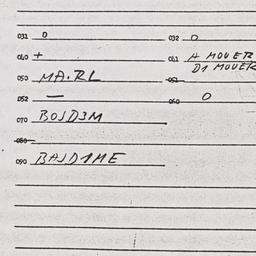 031 0 032 0
040 + 041 A MOVER
D1 MOVER
050 MA.RL 051
052 — 060 0
070 BOJD3M
080
090 BAJD1ME